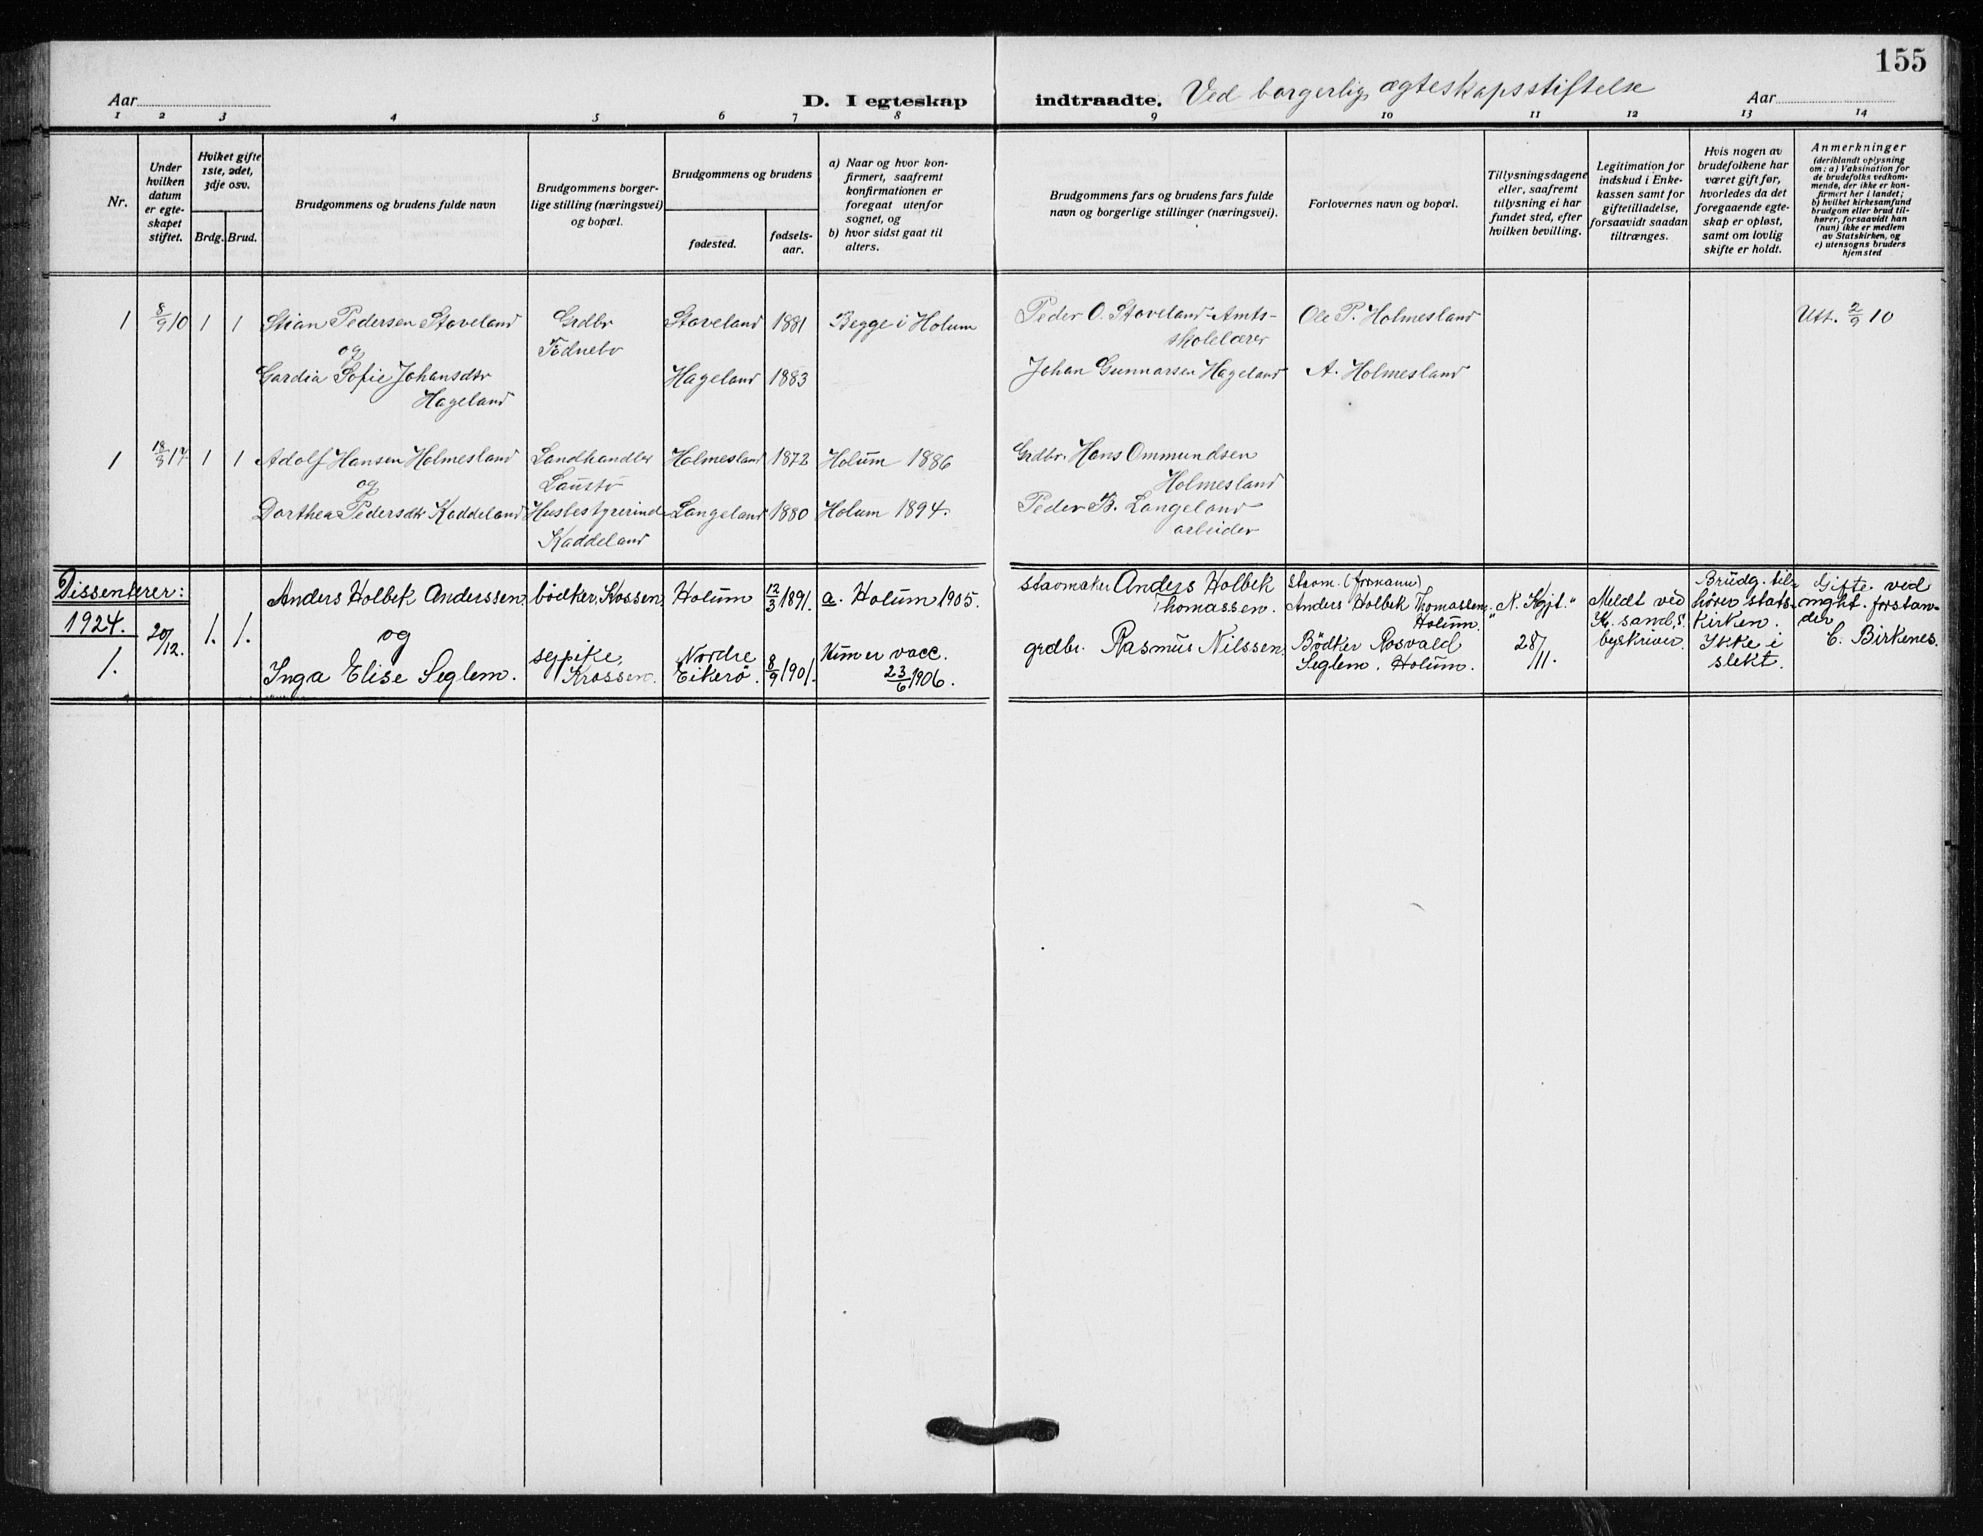 155
Aar
D. I egteskap indtraadte. Ved borgerlig ægteskapsstiftelse
Aar
1 2 3 4 5 6 7 8 9 10 11 12 13 14
Nr.
Under
hvilken
datum
er egte-
skapet
stiftet.
Hviket gifte
1ste, 2det,
3dje osv.
Brdg. Brud.
Brudgommens og brudens fulde navn
Brudgommens borger-
lige stilling (næringsvei)
og bopæl.
Brudgommens og brudens
fødested.
fødsels-
aar.
a) Naar og hvor kon-
firmert, saafremt
konfirmationen er
foregaat utenfor
sognet, og
b) hvor sidst gaat til
alters.
Brudgommens fars og brudens fars fulde
navn og borgerlige stillinger (næringsvei).
Forlovernes navn og bopæl.
Tillysningsdagene
eller, saafremt
tillysning ei har
fundet sted, efter
hvilken bevilling.
Legitimation for
indskud i Enke-
kassen samt for
giftetilladelse,
forsaavidt saadan
tiltrænges.
Hvis nogen av
brudefolkene har
været gift før,
hvorledes da det
foregaaende egte-
skap er opløst,
samt om lovlig
skifte er holdt.
Anmerkninger
(deriblandt oplysning
om: a) Vaksination for
de brudefolks vedkom-
mende, der ikke er kon-
firmert her i landet;
b) hvilket kirkesamfund
brudgom eller brud til-
hører, forsaavidt han
(hun) ikke er medlem
av Statskirken, og
c) utensogns bruders
hjemsted
1 8/9 10 1 1 Stian Pedersen Stoveland Grdbr Stoveland 1881 Begge i Holum Peder O. Stoveland Amts- Ole P. Holmesland Utt. 2/9 10
og
skolelærer
Gardia Sofie Johansdtr Hageland 1883 Johan Gunnarsen Hageland A. Holmesland
Hageland
1 18/9 17 1 1 Adolf Hansen Holmesland Landhandler Holmesland 1872 Holum 1886 Grdbr. Hans Ommundsen
og
Holmesland
Dorthea Pedersdtr Kaddeland Husbestyrerinde Langeland 1880 Holum 1894. Peder B. Langeland
Kaddeland arbeider
Dissenterer:
1924.
1.
20/12. 1. 1.
Anders Holbek Anderssen
og
Inga Elise Seglem.
bødker,
sypike,
Krossen.
Holum
Nordre
Eikerø.
12/3 1891.
8/9 1901.
a. Holum 1905.
Hun er vacc.
23/6 1906.
Anders Holbek
Thomassen.
grdbr. Rasmus Nilssen
Anders Holbek Thomassen
Holum.
Bødker Rosvald
Seglem. Holum.
28/11.
Meldt ved
Brudg. til-
hører stats-
kirken.
Ikke i
slekt.
Gifte ved
mght. forstan-
der
C. Birkenes.